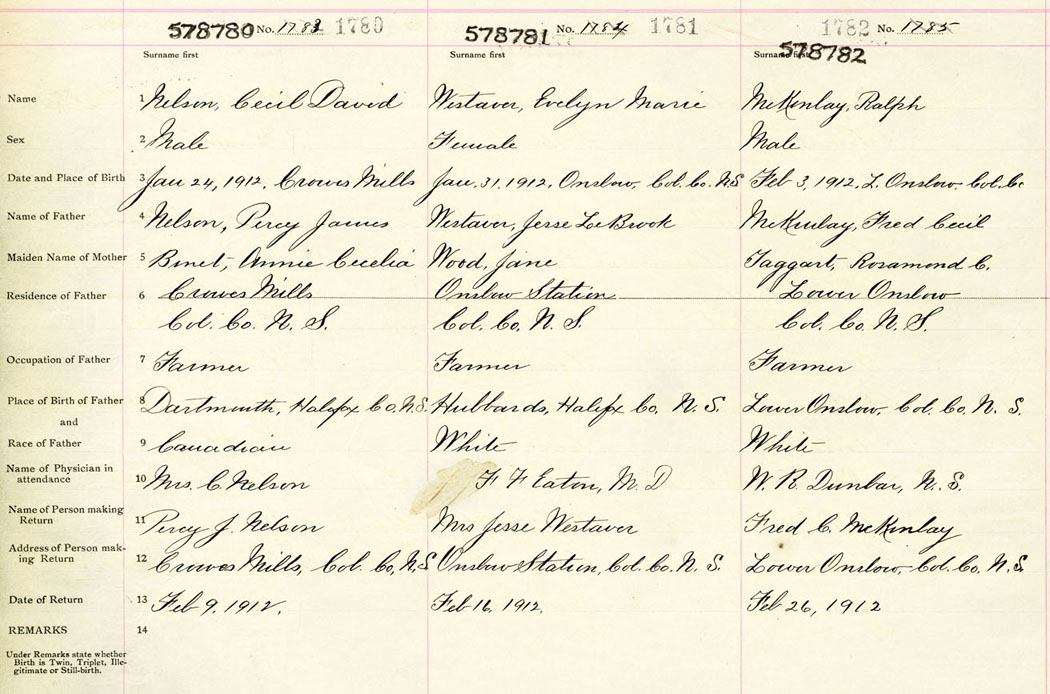 578780 No. 1783 1780 578781 No. 1784 1781 1782 No. 1785
Surname first Surname first Surname first 578782
Name 1 Nelson, Cecil David Westaver, Evelyn Marie McKinlay, Ralph
Sex 2 Male Female Male
Date and Place of Birth 3 Jan 24, 1912. Crowes Mills Jan. 31, 1912. Onslow, Col. Co. N.S Feb 3, 1912. L. Onslow, Col. Co
Name of Father 4 Nelson, Percy James Westaver, Jesse LeBrook McKinlay, Fred Cecil
Maiden Name of Mother 5 Binet, Annie Cecelia Wood, Jane Taggart, Rosamond C.
Residence of Father 6 Crowes Mills Onslow Station Lower Onslow
Col. Co. N. S. Col. Co. N. S. Col. Co. N. S.
Occupation of Father 7 Farmer Farmer Farmer
Place of Birth of Father 8 Dartmouth, Halifax Co, N.S. Hubbards, Halifax Co, N. S. Lower Onslow, Col. Co, N. S.
and
Race of Father 9 Canadian White White
Name of Physician in
attendance 10 Mrs. C. Nelson F F Eaton, M. D W. R. Dunbar, N. S.
Name of Person making
Return 11 Percy J. Nelson Mrs Jesse Westaver Fred C. McKinlay
Address of Person mak-
ing Return 12 Crowes Mills, Col. Co, N.S Onslow Station, Col. Co. N. S. Lower Onslow, Col. Co. N. S.
Date of Return 13 Feb 9. 1912. Feb 16, 1912. Feb 26, 1912
REMARKS 14
Under Remarks state whether
Birth is Twin, Triplet, Ille-
gitimate or Still-birth.